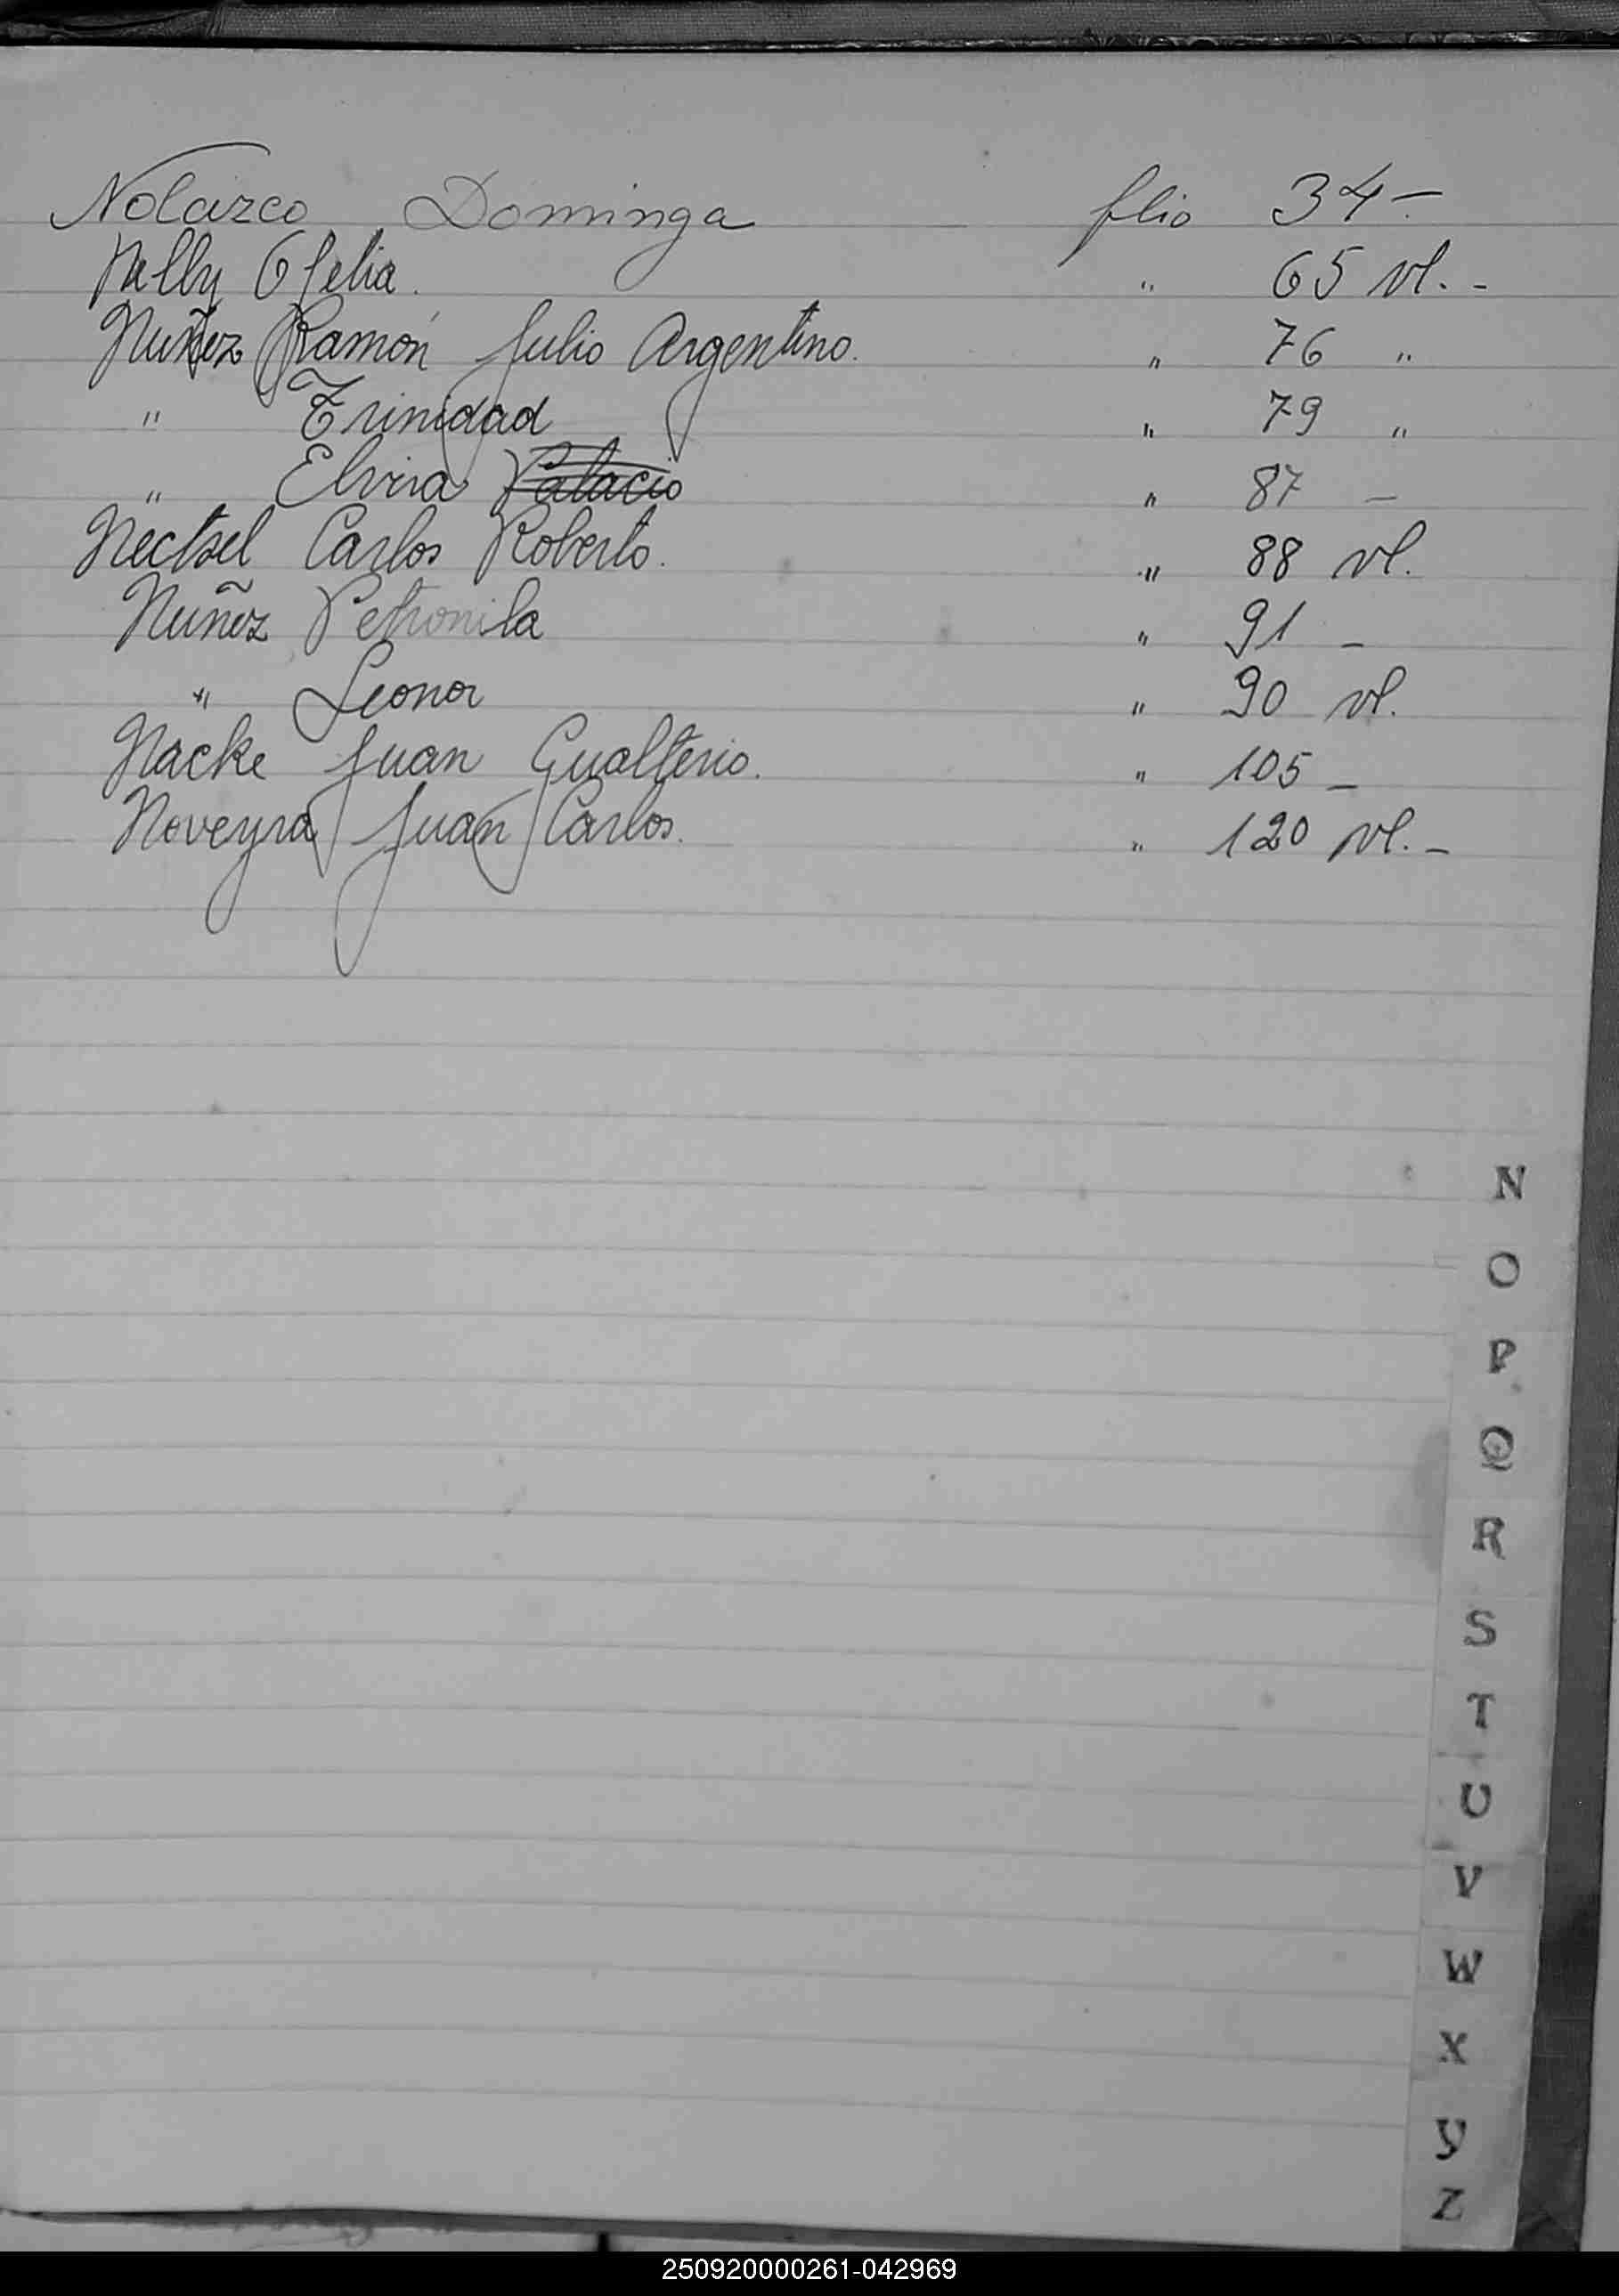 Nolazco Dominga flio 34-
Nelly Ofelia. " 65 vl. -
Nuñez Ramón Julio Argentino. " 76 "
" Trinidad " 79 "
" Elvira Palacio " 87 -
Nectsel Carlos Roberto. " 88 vl.
Nuñez Petronila " 91 -
" Leonor " 90 vl.
Nacke Juan Gualterio. " 105 -
Noveyra Juan Carlos. " 120 vl. -
N
O
P
Q
R
S
T
U
V
W
X
Y
Z
250920000261-042969